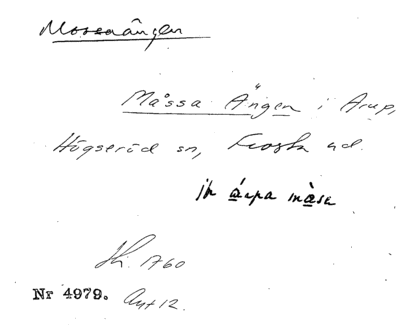 Mossaängen
Måssa Ängen i Arup,
Högseröd sn, Frosta hd.
jh árpa màsa
Sk. 1760
Nr 4979. Avt 12.